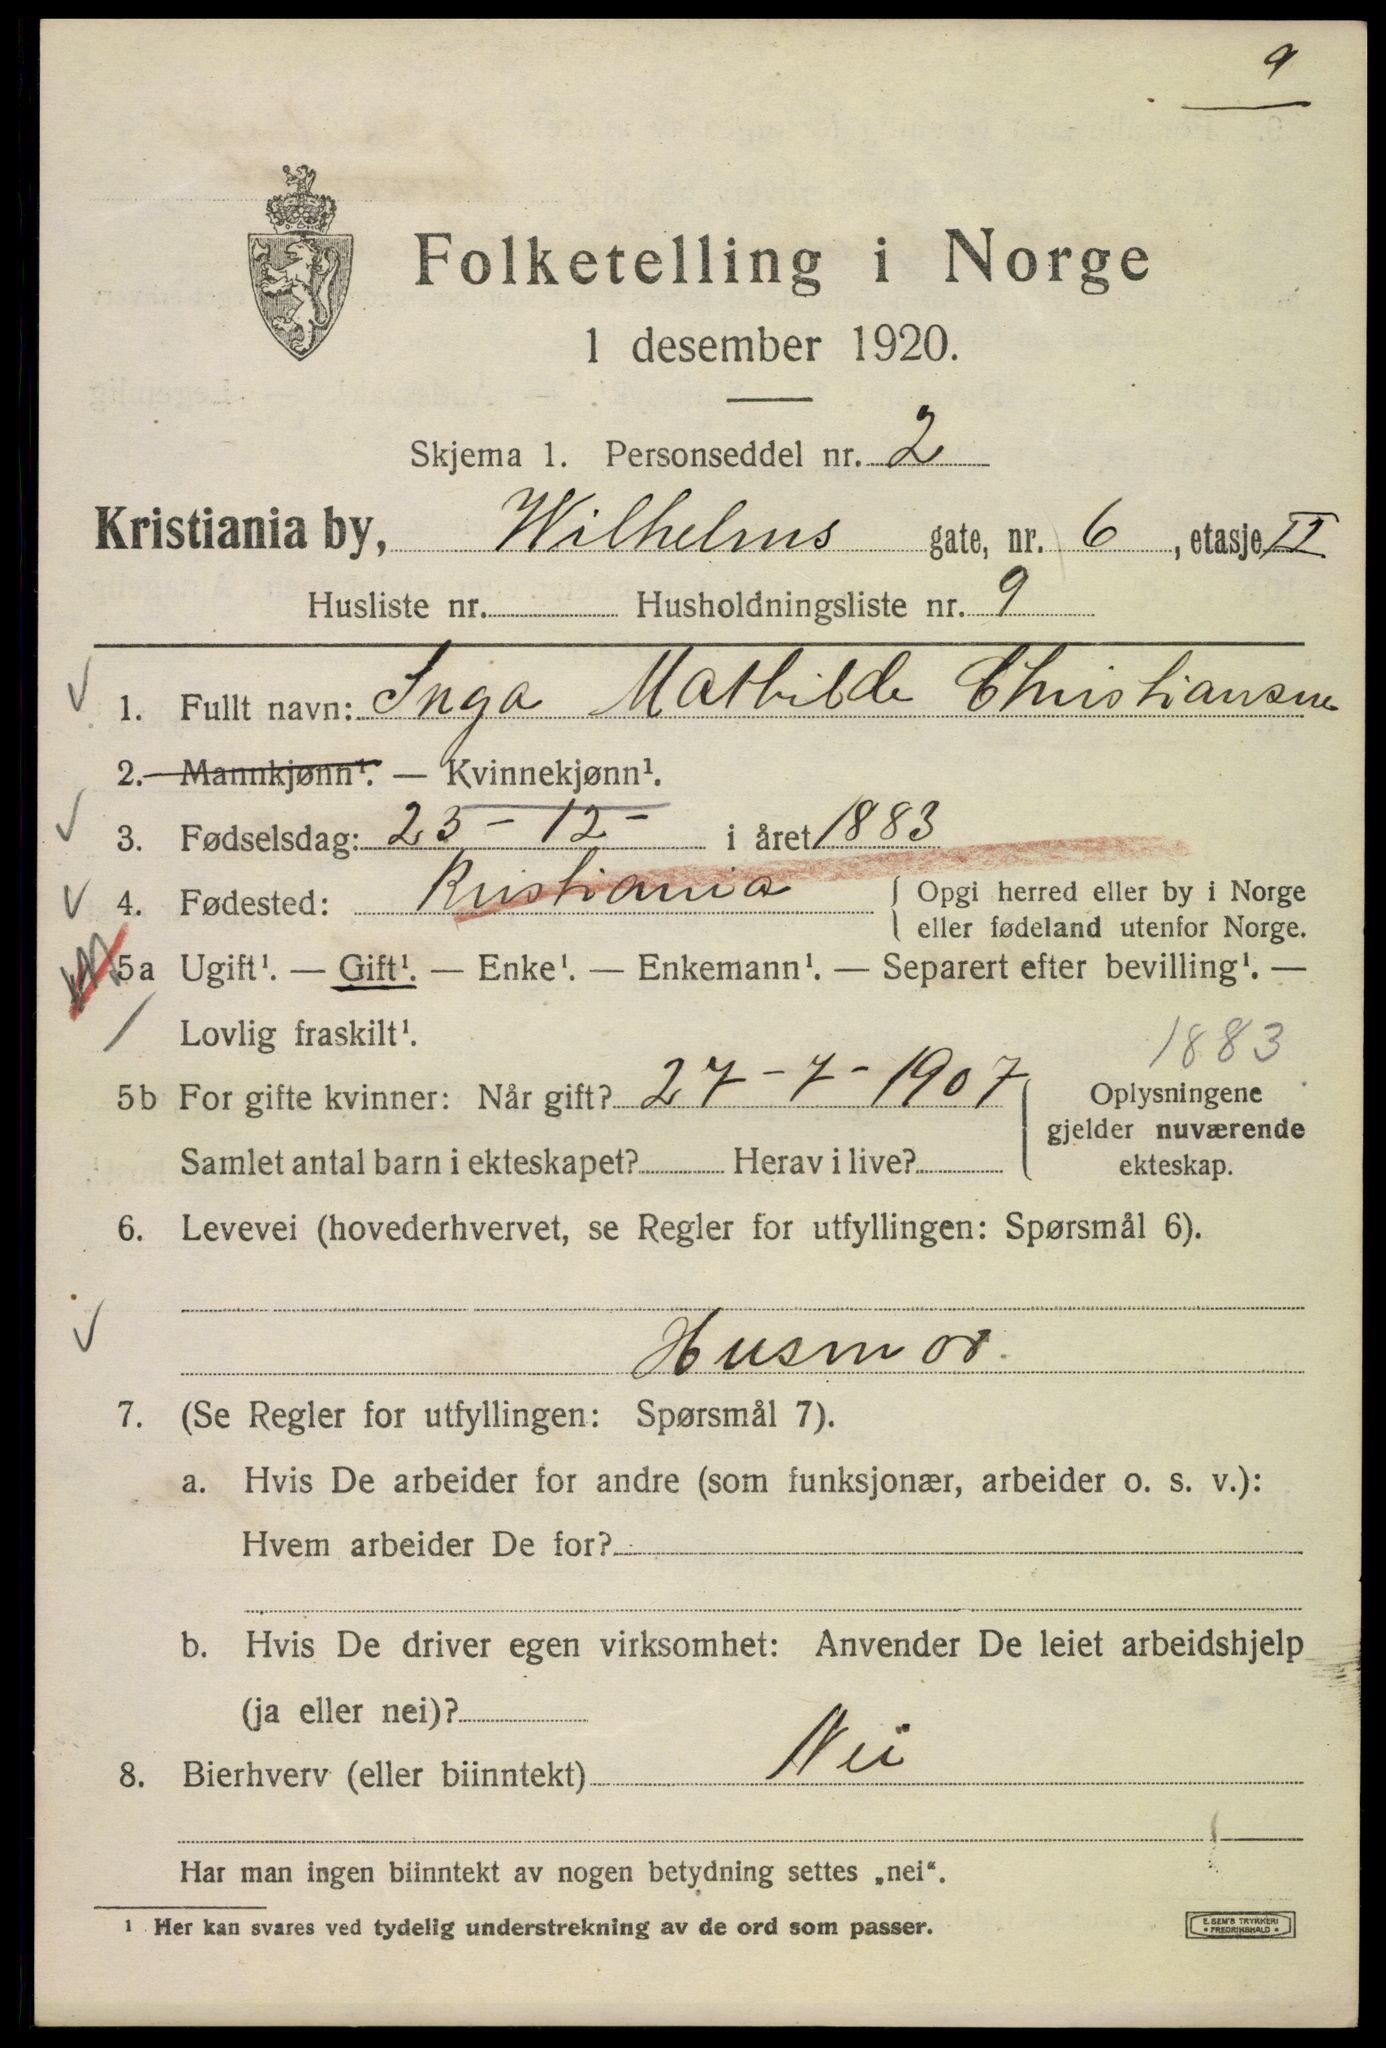 9
Folketelling i Norge
1 desember 1920.
Skjema 1. Personseddel nr. 2
Kristiania by, Wilhelms gate, nr. 6, etasje II
Husliste nr. Husholdningsliste nr. 9
1. Fullt navn: Inga Mathilde Christiansen
2. Mannkjønn¹. — Kvinnekjønn¹.
3. Fødselsdag: 23 - 12 - i året 1883
4. Fødested: Kristiania { Opgi herred eller by i Norge
eller fødeland utenfor Norge.
5a Ugift¹. — Gift¹. — Enke¹. — Enkemann¹. — Separert efter bevilling¹. —
Lovlig fraskilt¹.
1883
5b For gifte kvinner: Når gift? 27 - 7 - 1907 { Oplysningene
gjelder nuværende
Samlet antal barn i ekteskapet? Herav i live? ekteskap.
6. Levevei (hovederhvervet, se Regler for utfyllingen: Spørsmål 6).
Husmor.
7. (Se Regler for utfyllingen: Spørsmål 7).
a. Hvis De arbeider for andre (som funksjonær, arbeider o. s. v.):
Hvem arbeider De for?
b. Hvis De driver egen virksomhet: Anvender De leiet arbeidshjelp
(ja eller nei)?
8. Bierhverv (eller biinntekt) Nei
Har man ingen biinntekt av nogen betydning settes „nei“.
¹ Her kan svares ved tydelig understrekning av de ord som passer.
E. SEM'S TRYKKERI
* FREDRIKSHALD *